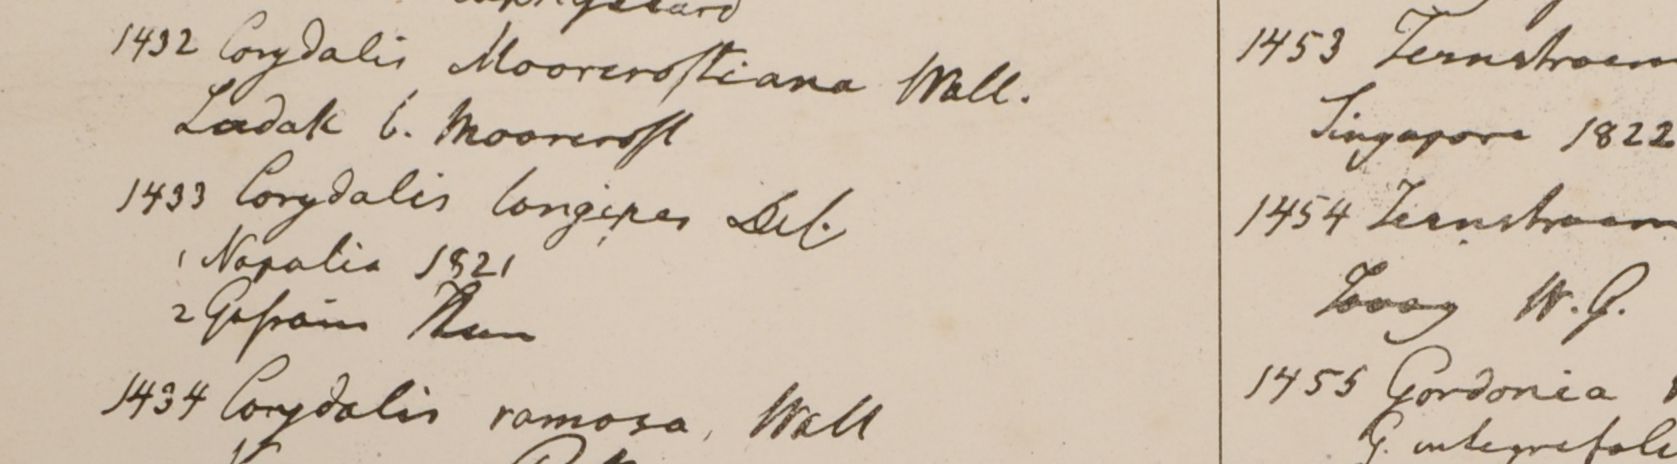 1432 Corydalis Moorcroftiana Wall.
Ladak C. Moorcroft
1433 Corydalis longipes Del.
1 Napalia 1821
2 Gosain Than
1434 Corydalis ramosa, Wall
1453 Ternstroem
Singapore 1822
1454 Ternstroem
Tavoy W.G.
1455 Gordonia
G. integrifoli